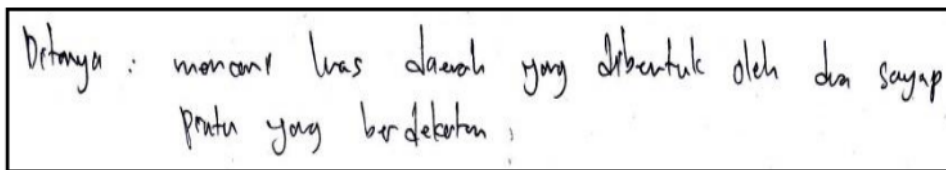 Ditanya : mencari luas daerah yang dibentuk oleh dua sayap
pintu yang berdekatan.